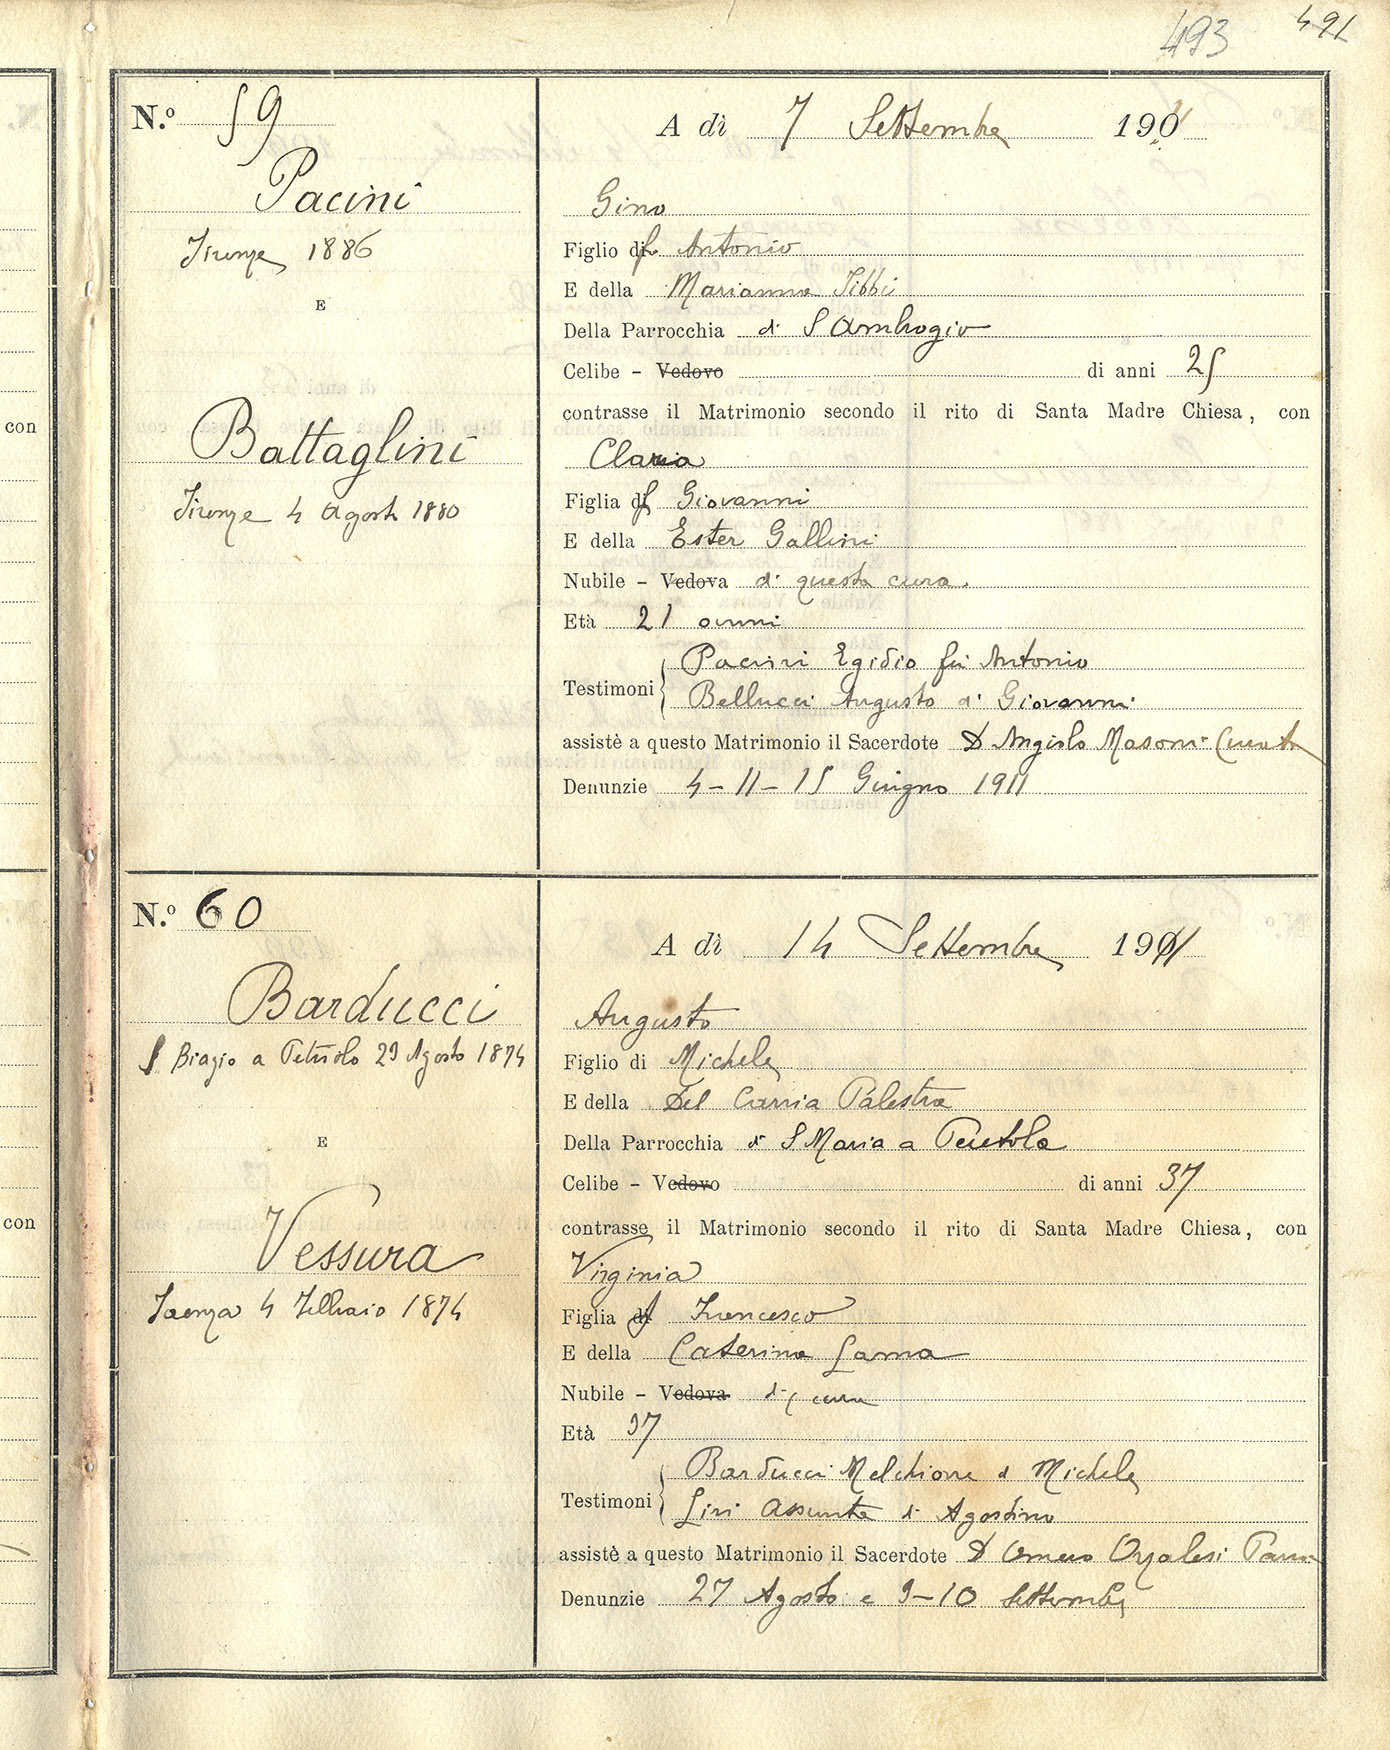 493 491
N.º 59
A dì 7 Settembre 1911
Pacini
Gino
Firenze 1886
Figlio di fu Antonio
E
E della Marianna Tibbi
Della Parrocchia di S Ambrogio
Celibe - Vedovo di anni 25
contrasse il Matrimonio secondo il rito di Santa Madre Chiesa, con
Battaglini
Clara
Firenze 4 Agosto 1880
Figlia di Giovanni
E della Ester Gallini
Nubile - Vedova di questa cura.
Età 21 anni
Testimoni Pacini Egidio fu Antonio
Bellucci Augusto di Giovanni
assistè a questo Matrimonio il Sacerdote D Angiolo Masoni Curato
Denunzie 4-11-15 Giugno 1911
N.º 60
A dì 14 Settembre 1911
Barducci
Augusto
S Biagio a Petriolo 29 Agosto 1874
Figlio di Michele
E della Del Carria Palestra
E
Della Parrocchia di S Maria a Peretola
Celibe - Vedovo di anni 37
contrasse il Matrimonio secondo il rito di Santa Madre Chiesa, con
Vessura
Virginia
Faenza 4 Febbraio 1874
Figlia di Francesco
E della Caterina Lama
Nubile - Vedova di cura
Età 37
Testimoni Barducci Melchiorre di Michele
Lini Assunta di Agostino
assistè a questo Matrimonio il Sacerdote D Omero Orzalesi
Denunzie 27 Agosto e 3-10 Settembre
con
con